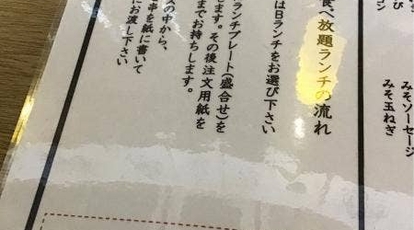 び
ジ
みそソーセージ
みそ玉ねぎ
食べ放題ランチの流れ
はBランチをお選び下さい
ランチプレート(盛合せ)を
ます。その後注文用紙を
までお持ちします。
の中から、
串を紙に書いて
にお渡し下さい